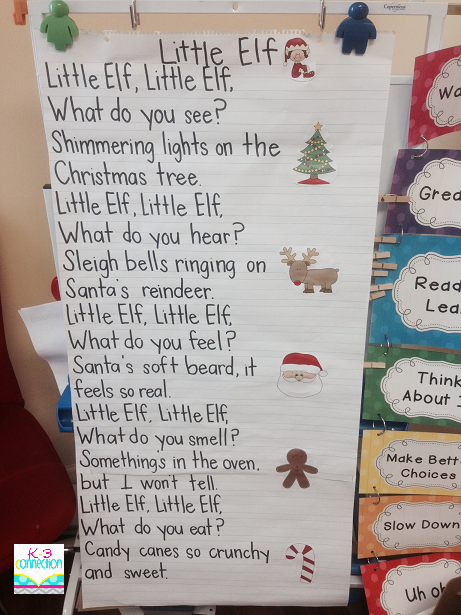 Little Elf
Little Elf, Little Elf,
What do you see?
Shimmering lights on the
Christmas tree.
Little Elf, Little Elf,
What do you hear?
Sleigh bells ringing on
Santa's reindeer.
Little Elf, Little Elf,
What do you feel?
Santa's soft beard, it
feels so real.
Little Elf, Little Elf,
What do you smell?
Somethings in the oven,
but I won't tell.
Little Elf, Little Elf,
What do you eat?
Candy canes so crunchy
and sweet.
Wa
Grea
Read
Lea
Think
About I
Make Bett
Choices
Slow Down
Uh oh
K-3
connection